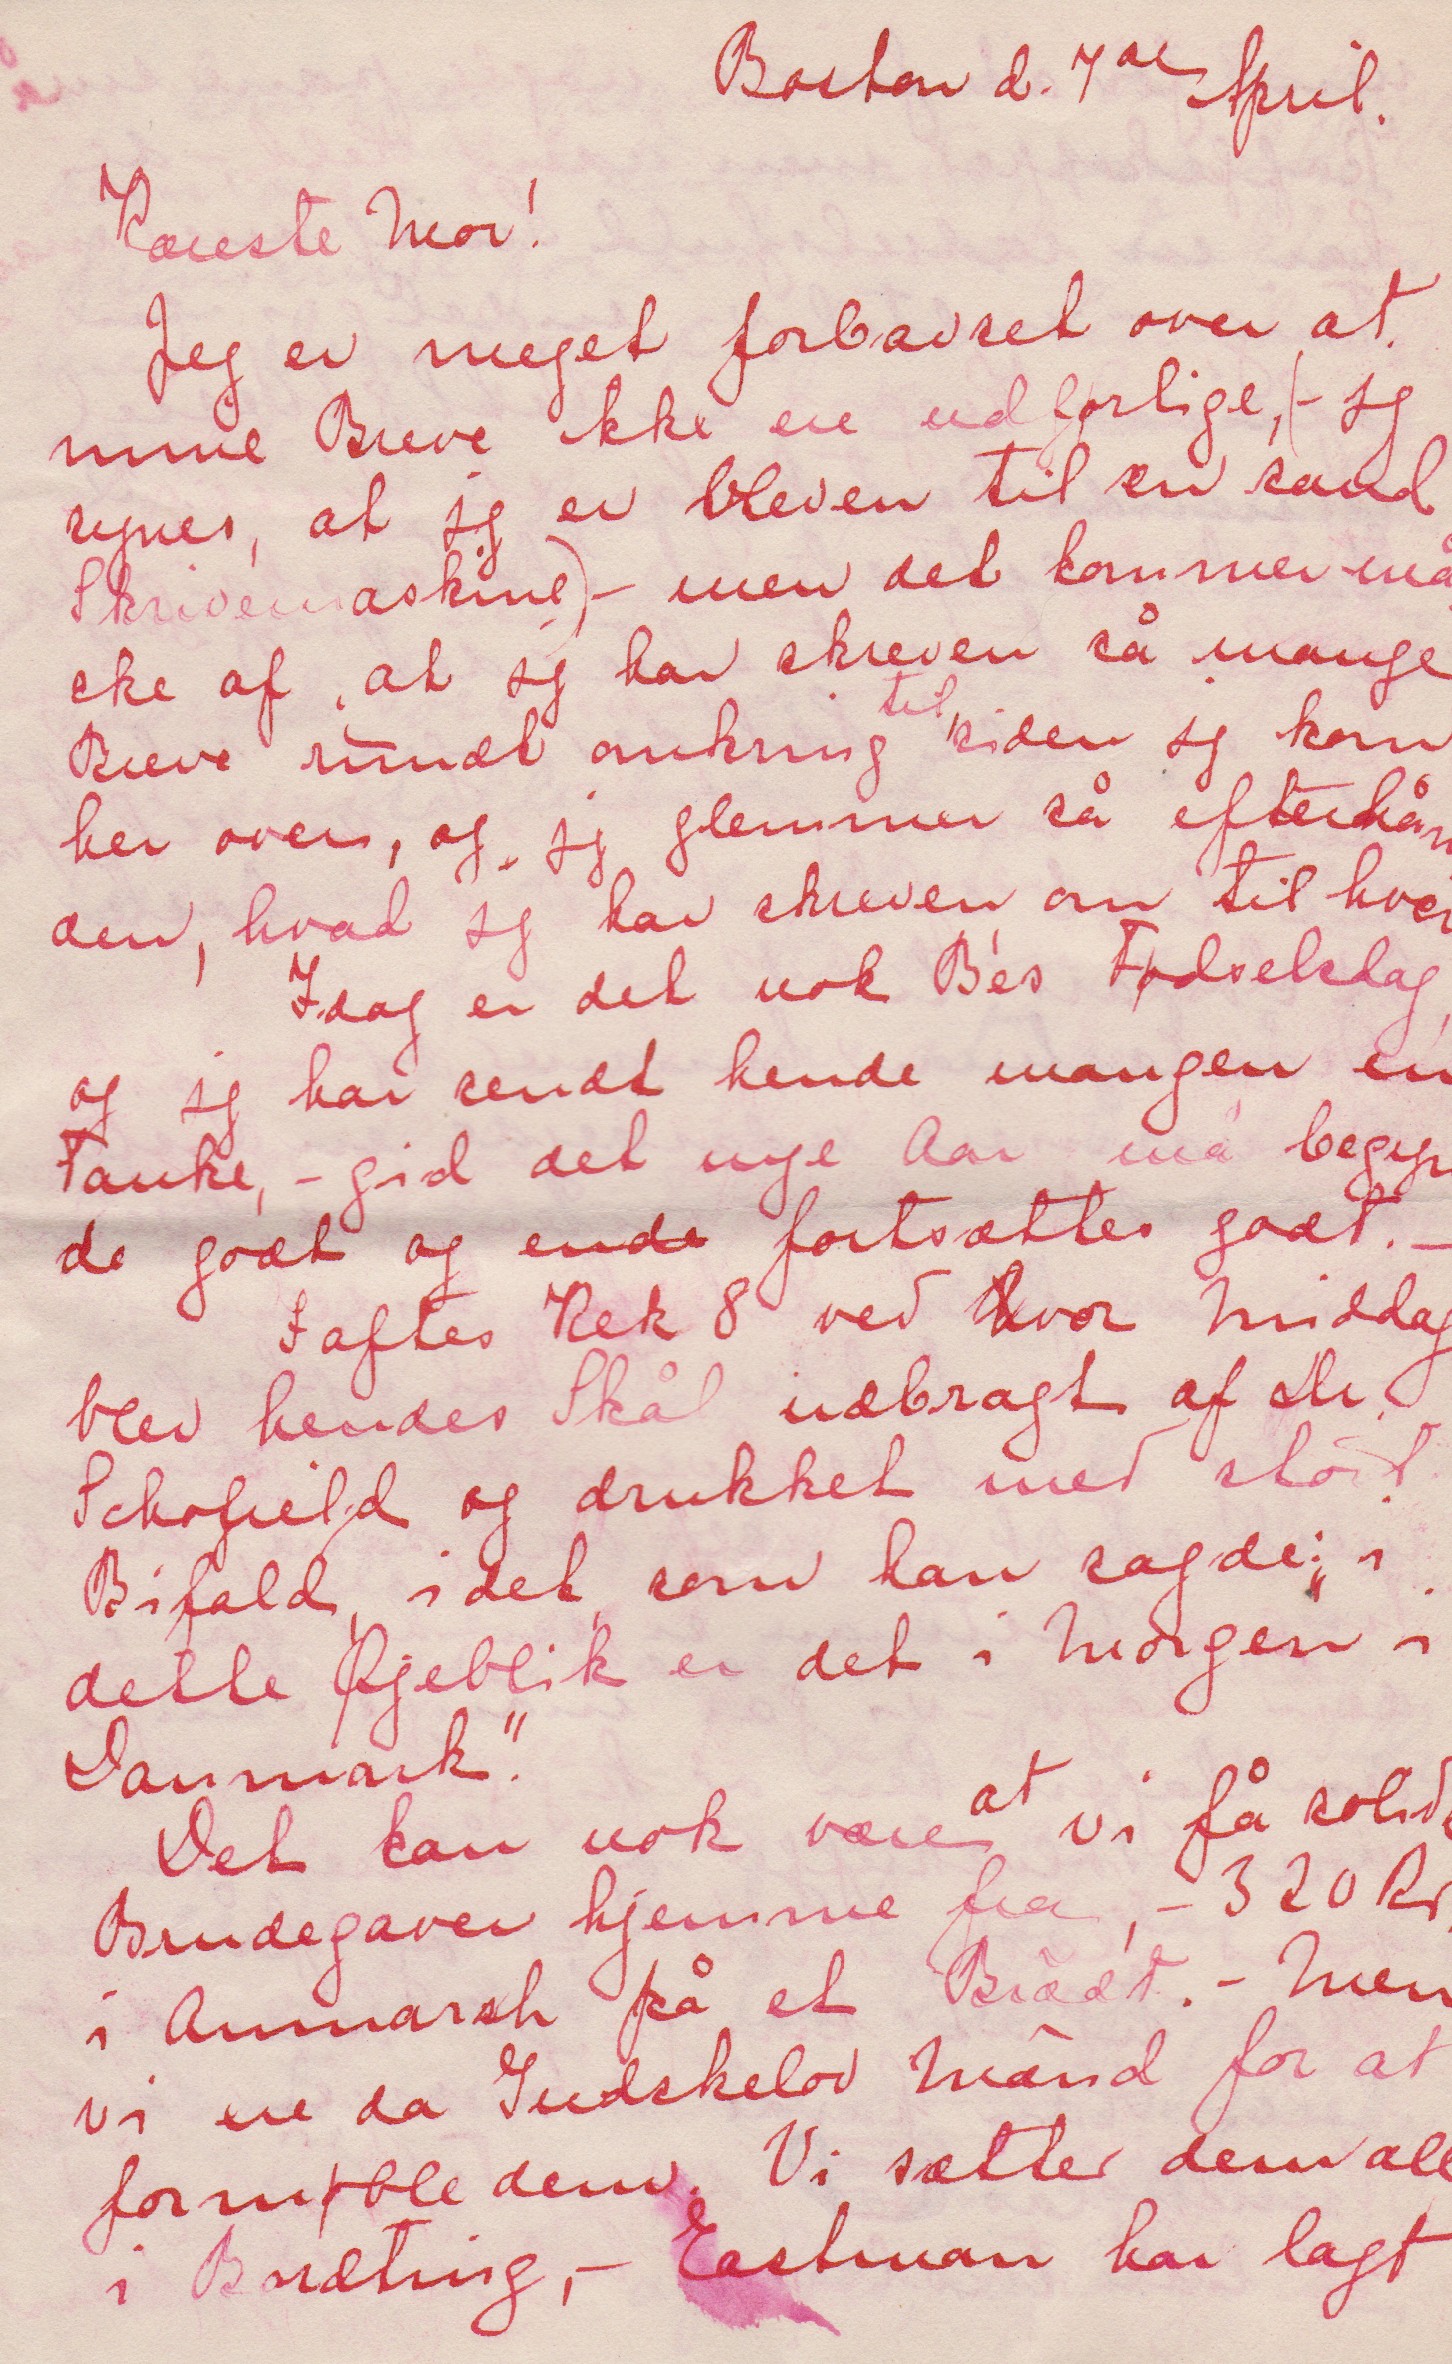 Boston d. 7de April.
Kæreste Mor!
Jeg er meget forbavset over, at
mine Breve ikke ere udførlige, (- jeg
synes, at jeg er bleven til en sand
Skrivemaskine) - men det kommer må
ske af, at jeg har skreven så mange
Breve rundt omkring til, siden jeg kom
her over, og jeg glemmer så efterhån
den, hvad jeg har skreven om til hver
Idag er det nok Bés Fødselsdag,
og jeg har sendt hende mangen en
Tanke, - gid det nye Aar må begyn
de godt og ende fortsættes godt. -
Iaftes Klk 8 ved vor Middag
blev hendes Skål udbragt af Dr.
Schofield og drukket med stort
Bifald, idet, som han sagde: "i
dette Øjeblik er det i Morgen i
Danmark".
Det kan nok være at vi få solide
Brudegaver hjemme fra, - 320 Kr
i Anmarsh på et Brædt. - Men
vi ere da Gudskelov Mænd for at
formøble dem. Vi sætter dem alle
i Bordting, - Eastman har lagt